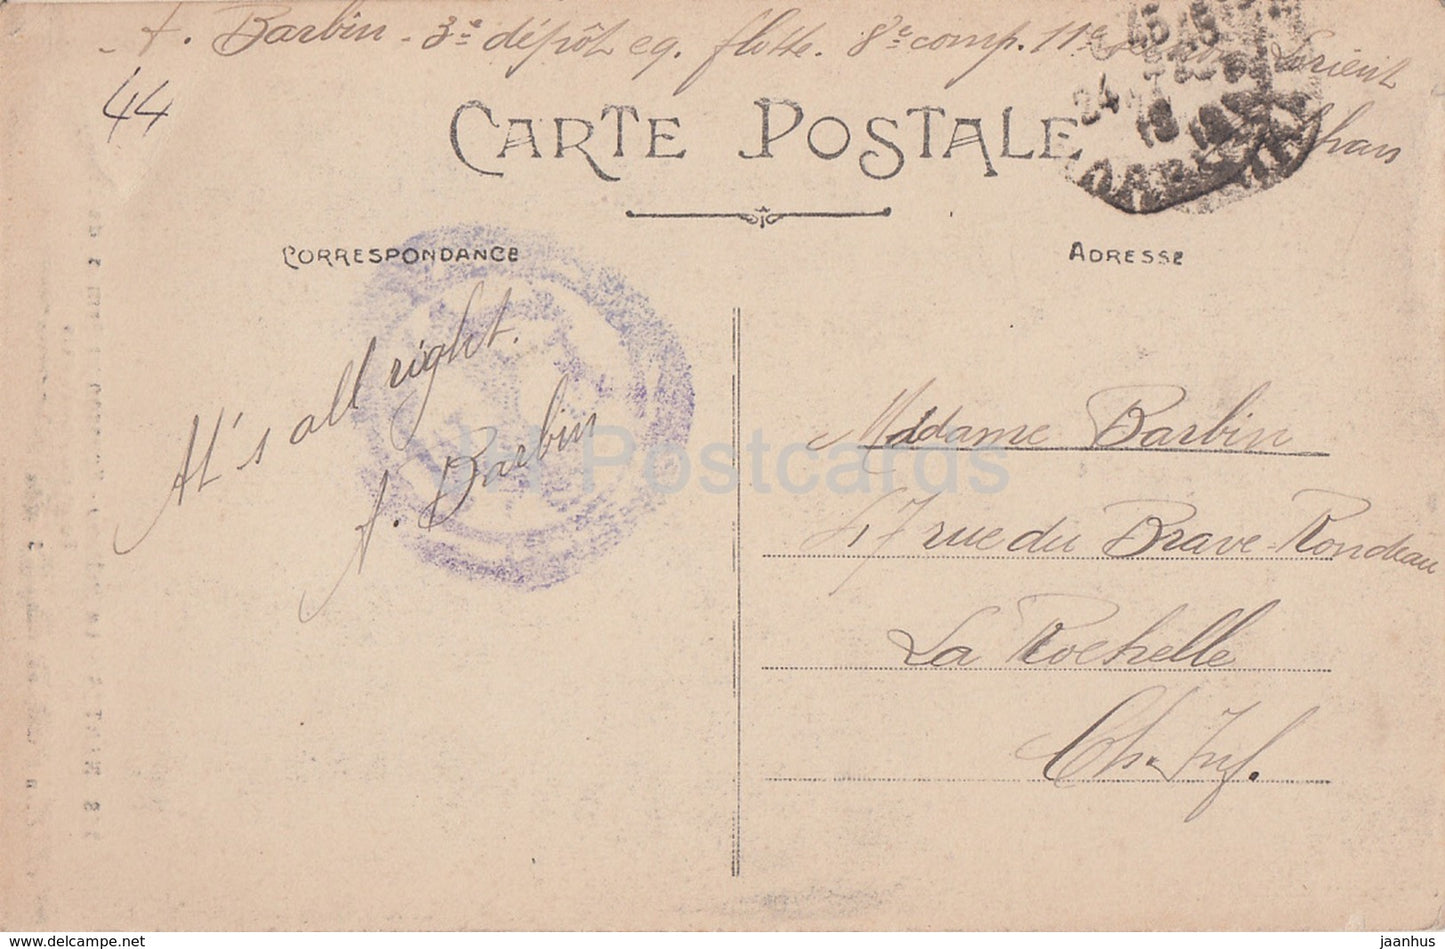 A. Barbin - 3e dépôt eq. flotte. 8e comp. 11e Lorient
44
CARTE POSTALE
CORRESPONDANCE
ADRESSE
At's all right.
A. Barbin
Madame Barbin
47 rue du Brave-Rondeau
La Rochelle
Ch. Inf.
JH Postcards
www.delcampe.net
jaanhus